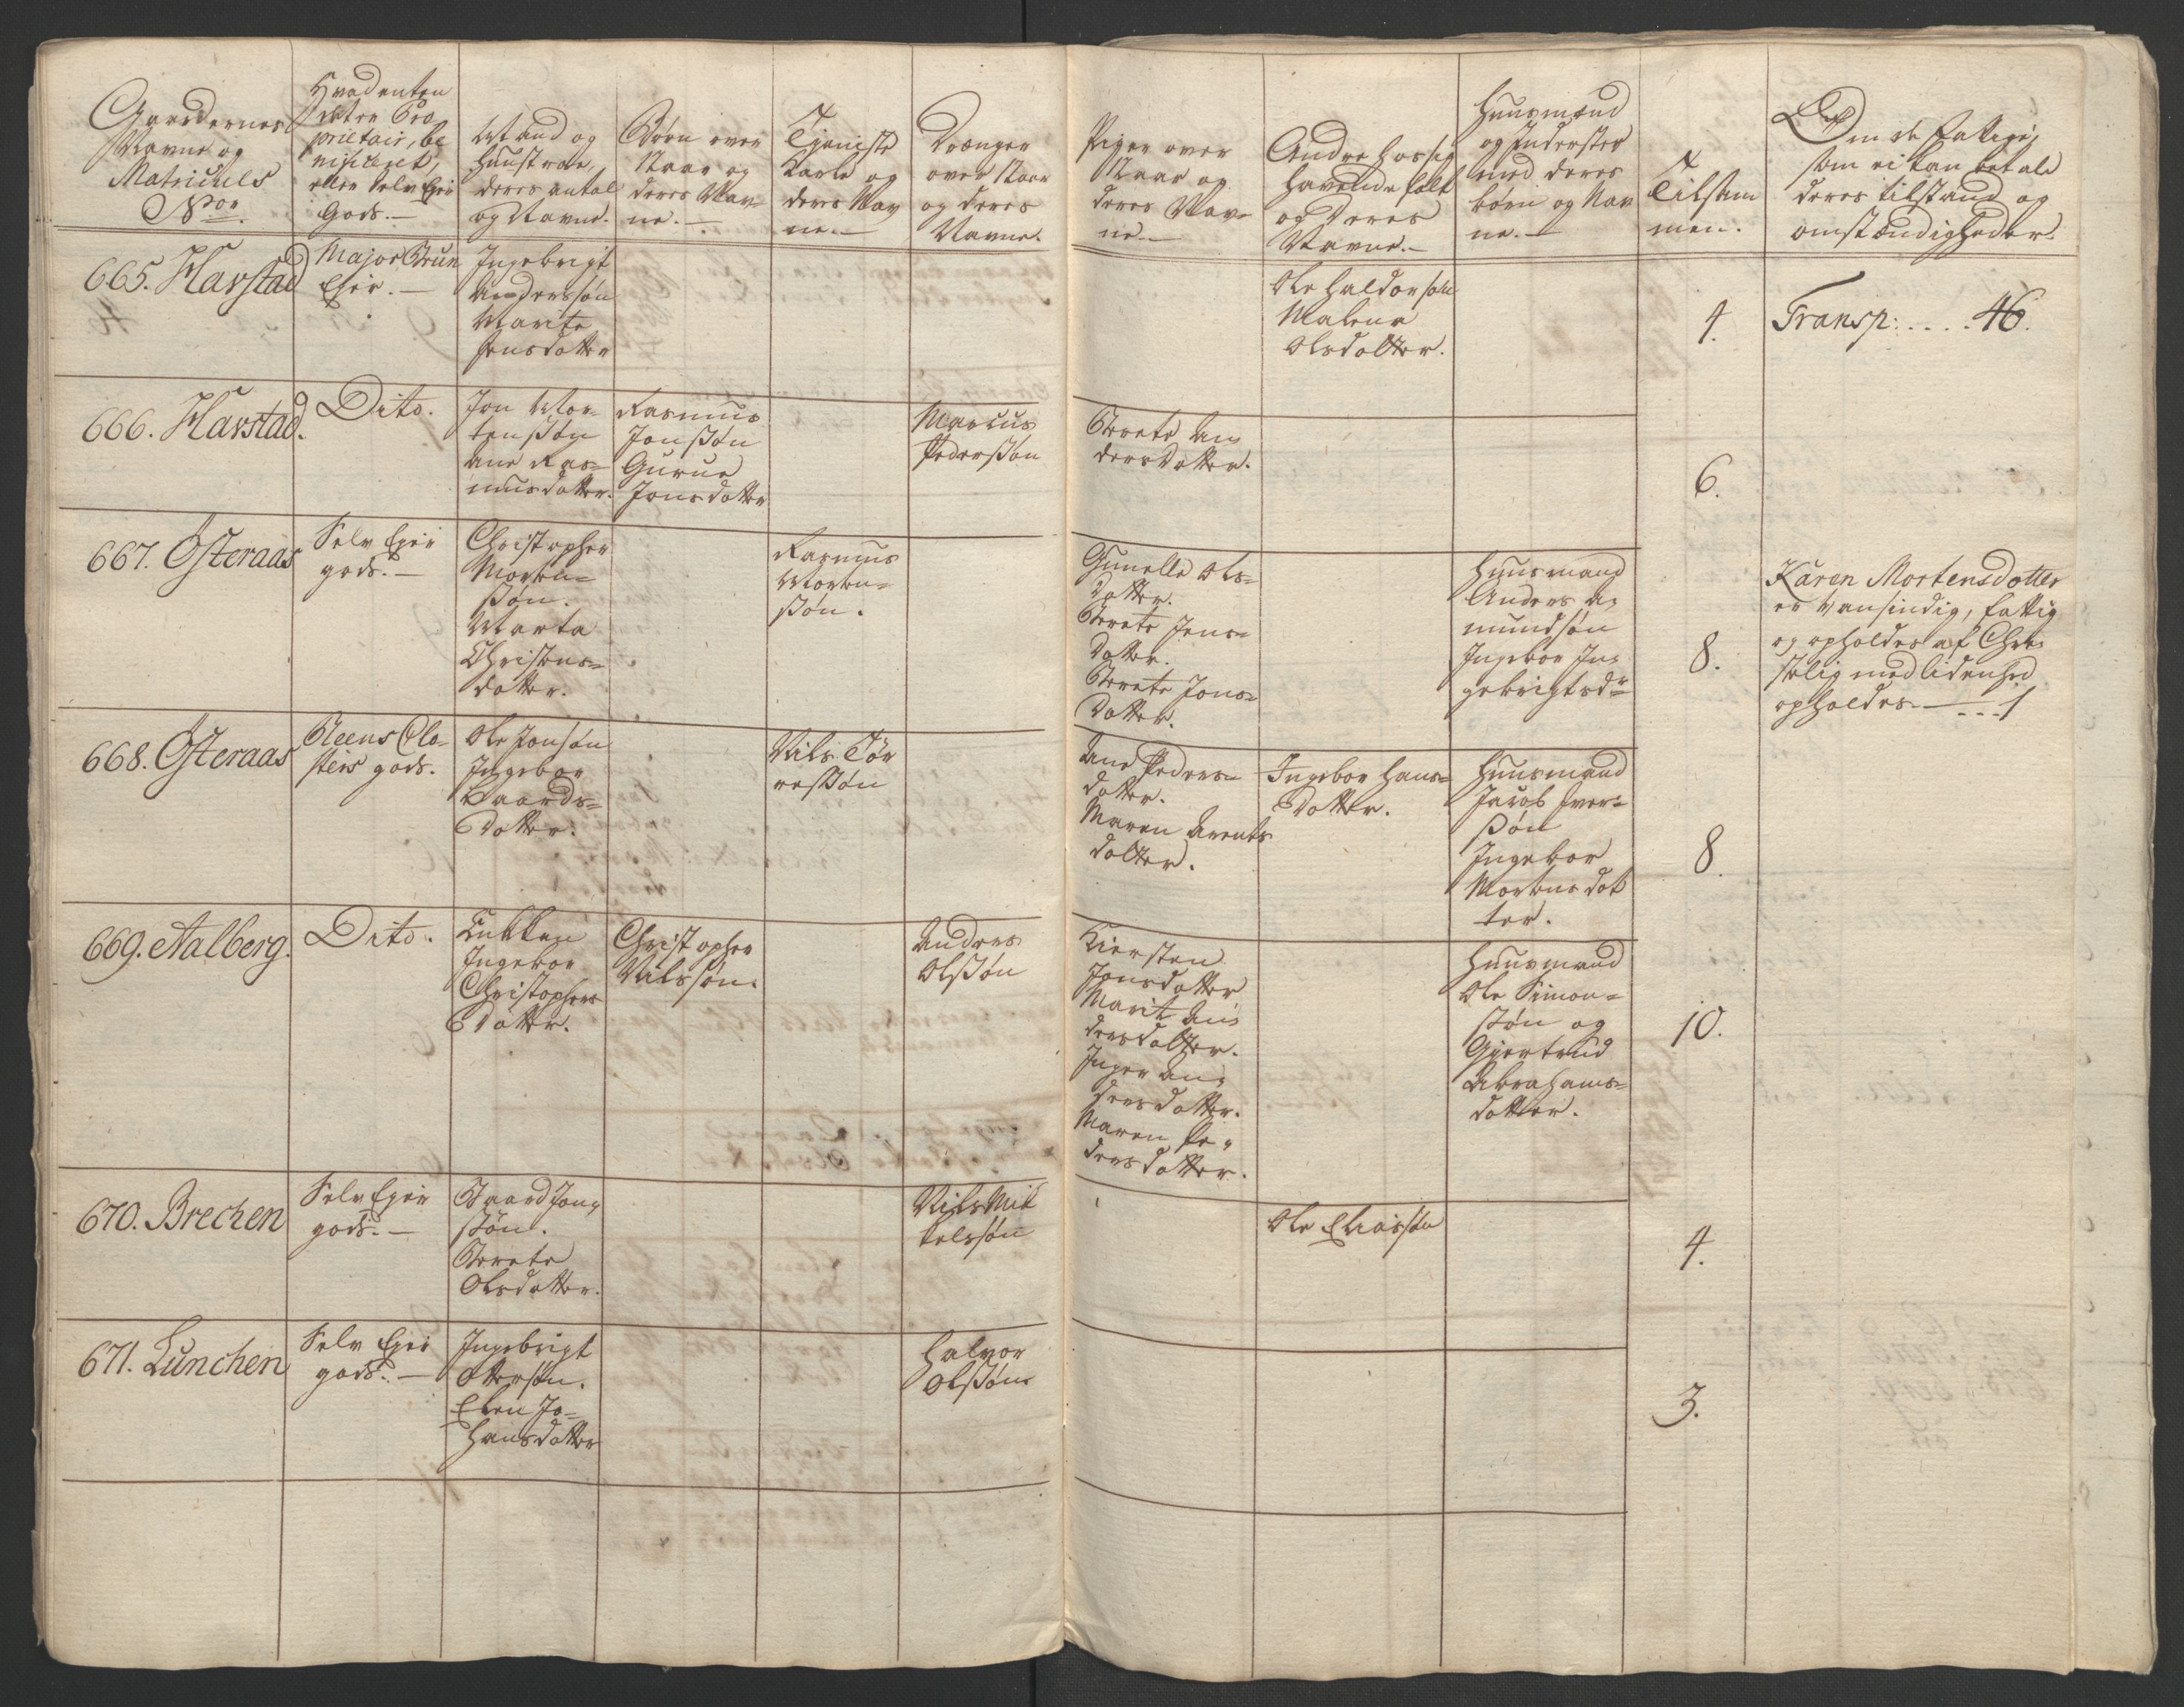 Gaardernes
Navne og
Matriculs
Nor.
Hvad enten
det er Pro
prietair, be
nificeret,
eller selv Eyer
Gods.
Mand og
Huustroe,
deres antal
og Navne.
Børn over
12 Aar og
deres Nav-
ne.
Tieniste
Karle og
deres Nav
ne.
Drenger
over 12 Aar
og deres
Navne.
Piger over
12 Aar og
deres Nav-
ne.
Andre hos sig
havende folk
og Deres
Navne.
Huusmænd
og Inderster
med deres
børn og Nav
ne.
Tilsam
men.
Om de fattige,
som ei kan betale
deres tilstand og
omstændigheder.
665. Havstad
Major Brun
Eyer.
Ingebrigt
Anderssøn
Marite
Jensdatter
Ole Haldorsøn
Malena
Olsdatter.
4.
Transp: . . . . 46.
666. Havstad.
Dito.
Jon Mor-
tenssøn
Ane Ras-
musdatter.
Rasmus
Jonssøn
Gurue
Jonsdatter
Marcus
Pederssøn
Berete An
dersdatter.
6.
667. Østeraas
Selv Eyer
gods.
Christopher
Morten-
ssøn.
Marta
Christens-
datter.
Rasmus
Morten-
ssøn.
Gunelle Ols-
Datter.
Berete Jens-
Datter.
Berete Jons-
Datter.
Huusmand
Anders A
mundsøn
Ingebor In
gebrigtsdr
8.
Karen Mortensdotter
er Vansindig, fattig
og opholdes af Chri
stelig medlidenhed
opholdes. . . . 1
668. Østeraas
Reens Clo-
sters gods.
Ole Jonsøn
Ingebor
Baards-
Datter.
Nils Tør
ressøn
Ane Peders-
datter.
Maren Arents
datter.
Ingebor Hans-
Datter.
Huusmand
Jacob Iver-
ssøn
Ingebor
Mortens dat
ter.
8.
669. Aalberg.
Dito.
Enkken
Ingebor
Christophers
Datter.
Christopher
Nilssøn.
Anders
Olssøn
Kiersten
Jonsdatter
Marit An
dersdatter.
Inger An
dersdatter.
Maren Pe-
dersdatter.
Huusmand
Ole Simon-
ssøn og
Giertrud
Abrahams-
datter.
10.
670. Brechen
Selv Eyer
gods.
Baard Jon
ssøn.
Berete
Olsdatter.
Nils Mik
kelssøn
Ole Eliassøn
4.
671. Lunchen
Selv Eyer
gods.
Ingebrigt
Ottersøn.
Elen Jo-
hansdatter
Halvor
Olssøn.
3.